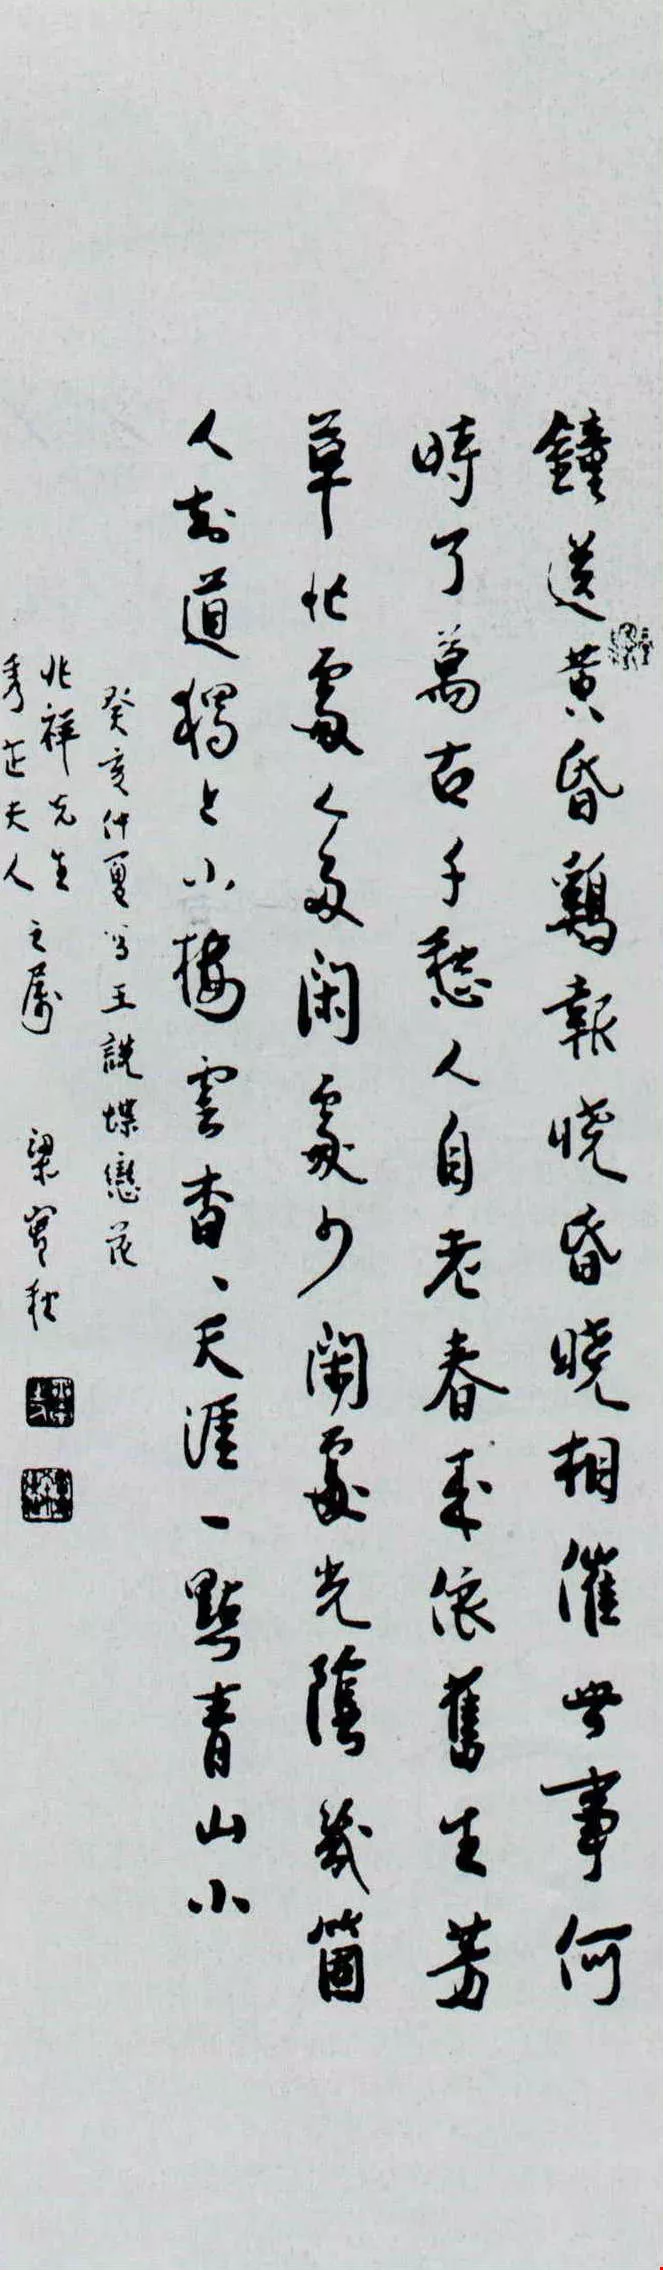 鐘送黃昏鷄報曉昏曉相催世事何
時了萬古千愁人自老春來依舊生芳
草忙處人多閑處少閑處光陰幾箇
人知道獨上小樓雲杳、天涯一點青山小
癸亥仲夏寫王詵蝶戀花
兆祥先生
秀芷夫人之屬 梁實秋